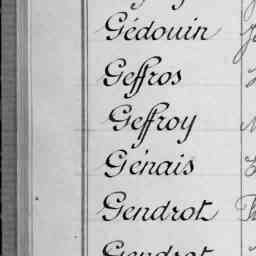 Gédouin
Geffros
Geffroy
Génais
Gendrot
Gendrot